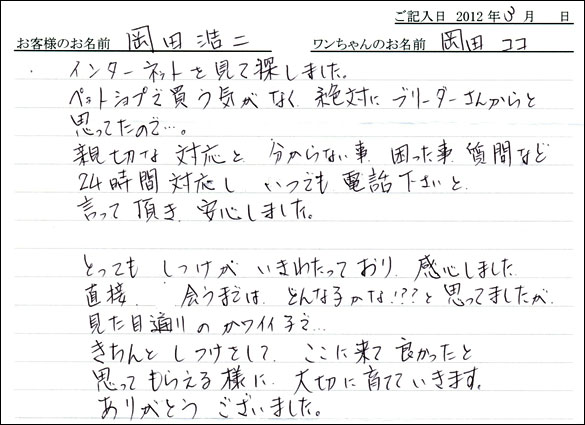 ご記入日 2012年3月 日
お客様のお名前 岡田浩二 ワンちゃんのお名前 岡田ココ
インターネットを見て探しました。
ペットショプで買う気がなく、絶対にブリーダーさんからと
思ってたので…。
親切な対応と、分からない事、困った事、質問など
24時間対応し、いつでも電話下さいと、
言って頂き、安心しました。
とっても しつけが いきわたっており、感心しました。
直接、会うまでは、どんな子かな!??と思ってましたが、
見た目通りのカワイイ子で…
きちんと しつけをして、ここに来て良かったと
思ってもらえる様に、大切に育てていきます。
ありがとうございました。